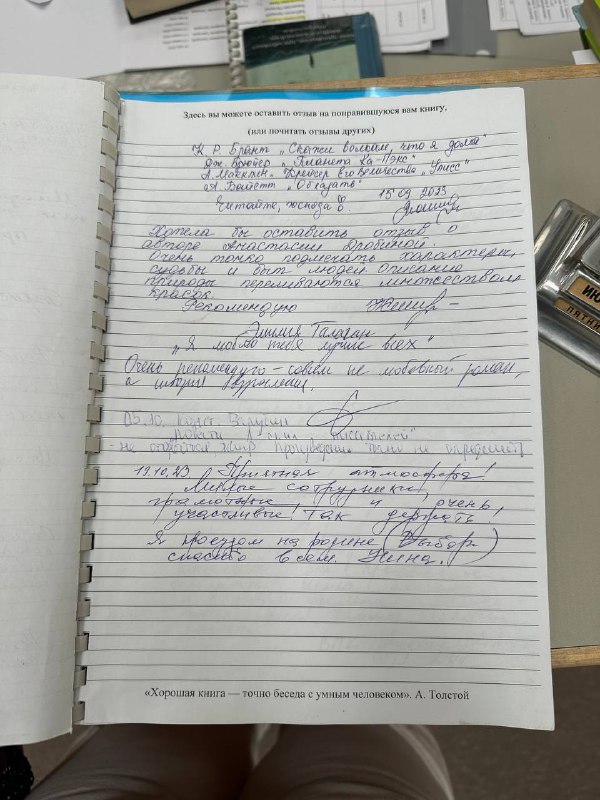 Здесь вы можете оставить отзыв на понравившуюся вам книгу.
(или почитать отзывы других)
К. Р. Брант „Скажи волкам, что я дома"
Дж. Брюер „Планета Ка-Пэкс"
А. Маклин „Крейсер Его Величества „Улисс"
А. Байетт „Обладать"
Читайте, господа 15 09 2023
Хотела бы оставить отзыв о
авторе Анастасии Дробиной.
Очень тонко подмечать характеры,
судьбы и быт людей. Описание
природы переливаются множеством
красок.
Рекомендую
Эмилия Галаган
„Я люблю тебя лучше всех"
Очень рекомендую – совсем не любовный роман,
а история взросления.
05.10.
19.10.23 Приятная атмосфера!
Милые сотрудники,
грамотные, и очень
участливые! Так держать!
Я проездом на родине (Выборг)
спасибо всем. Нина.
«Хорошая книга — точно беседа с умным человеком». А. Толстой
ИЮ
ПЯТНИ